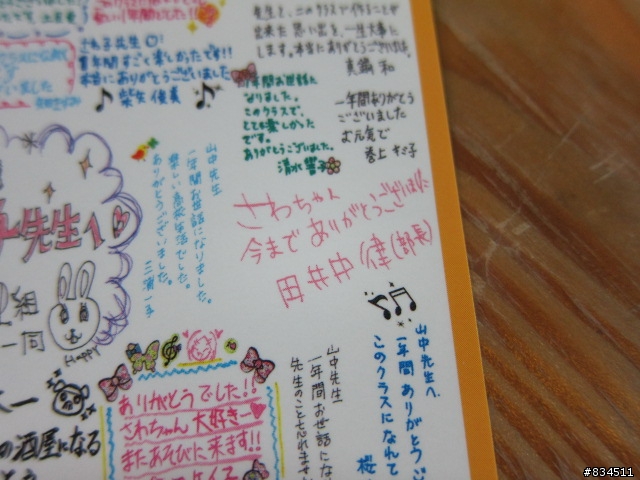 年間すごく楽しかったです!!
本当にありがとうございました
柴矢俊美
先生と、このクラスで作ることが
出来た思い出を、一生大事に
します。本当にありがとうございました。
真鍋 和
1年間お世話に
なりました。
このクラスで、
とても楽しかった
です。
ありがとうございました。
清水響子
一年間ありがとう
ございました
お元気で
巻上キミ子
山中先生
一年間お世話になりました。
楽しい高校生活でした。
ありがとうございました。
三浦
さわちゃん
今までありがとうございました
田井中 律(部長)
先生へ
組
一同
Happy
の酒屋になる
ありがとうでした!!
さわちゃん大好きー
またあそびに来ます!!
山中先生
一年間お世話にな
先生のこと忘れま
山中先生へ
1年間ありがとうご
このクラスになれて
桜
#834511